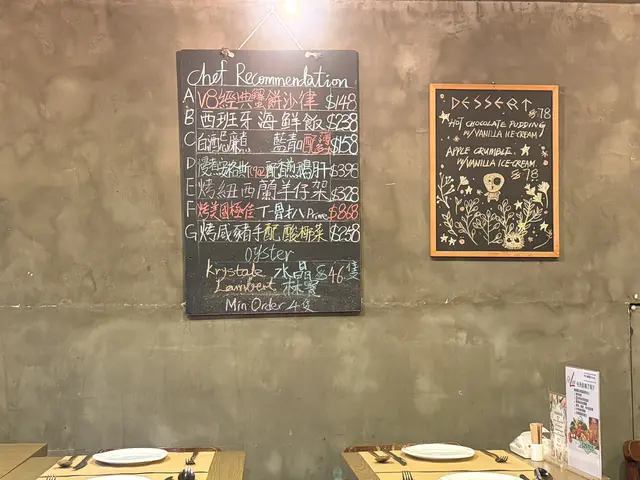 Chef Recommendation
A V8經典蟹餅沙律 $148
B 西班牙海鮮飯 $238
C 白酒 藍青口配薯 $158
D 配煎鵝肝 $398
E 烤紐西蘭羊仔架 $328
F 烤美國極佳丁骨扒 Prime $868
G 烤咸豬手配酸椰菜 $258
Oyster
Krystale 水晶 $46隻
Lambert 林寶
Min Order 4隻
DESSERT $78
HOT CHOCOLATE PUDDING
W/VANILLA ICE-CREAM
APPLE CRUMBLE
W/VANILLA ICE-CREAM
$78